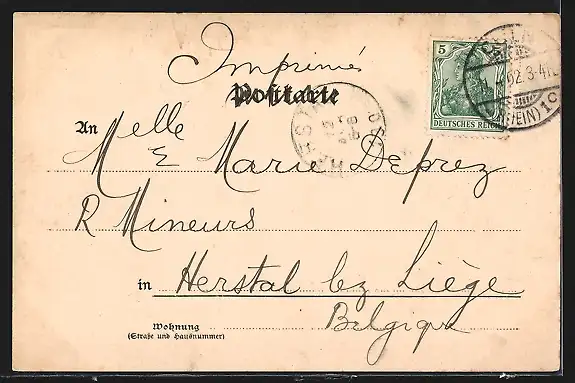 Imprimés
Postkarte
5
DEUTSCHES REICH
.02. 3-4N.
(RHEIN) 1c
HERSTAL
An Melle
E Marie Deprez
R Mineurs
in Herstal bz Liège
Belgique
Wohnung
(Straße und Hausnummer)